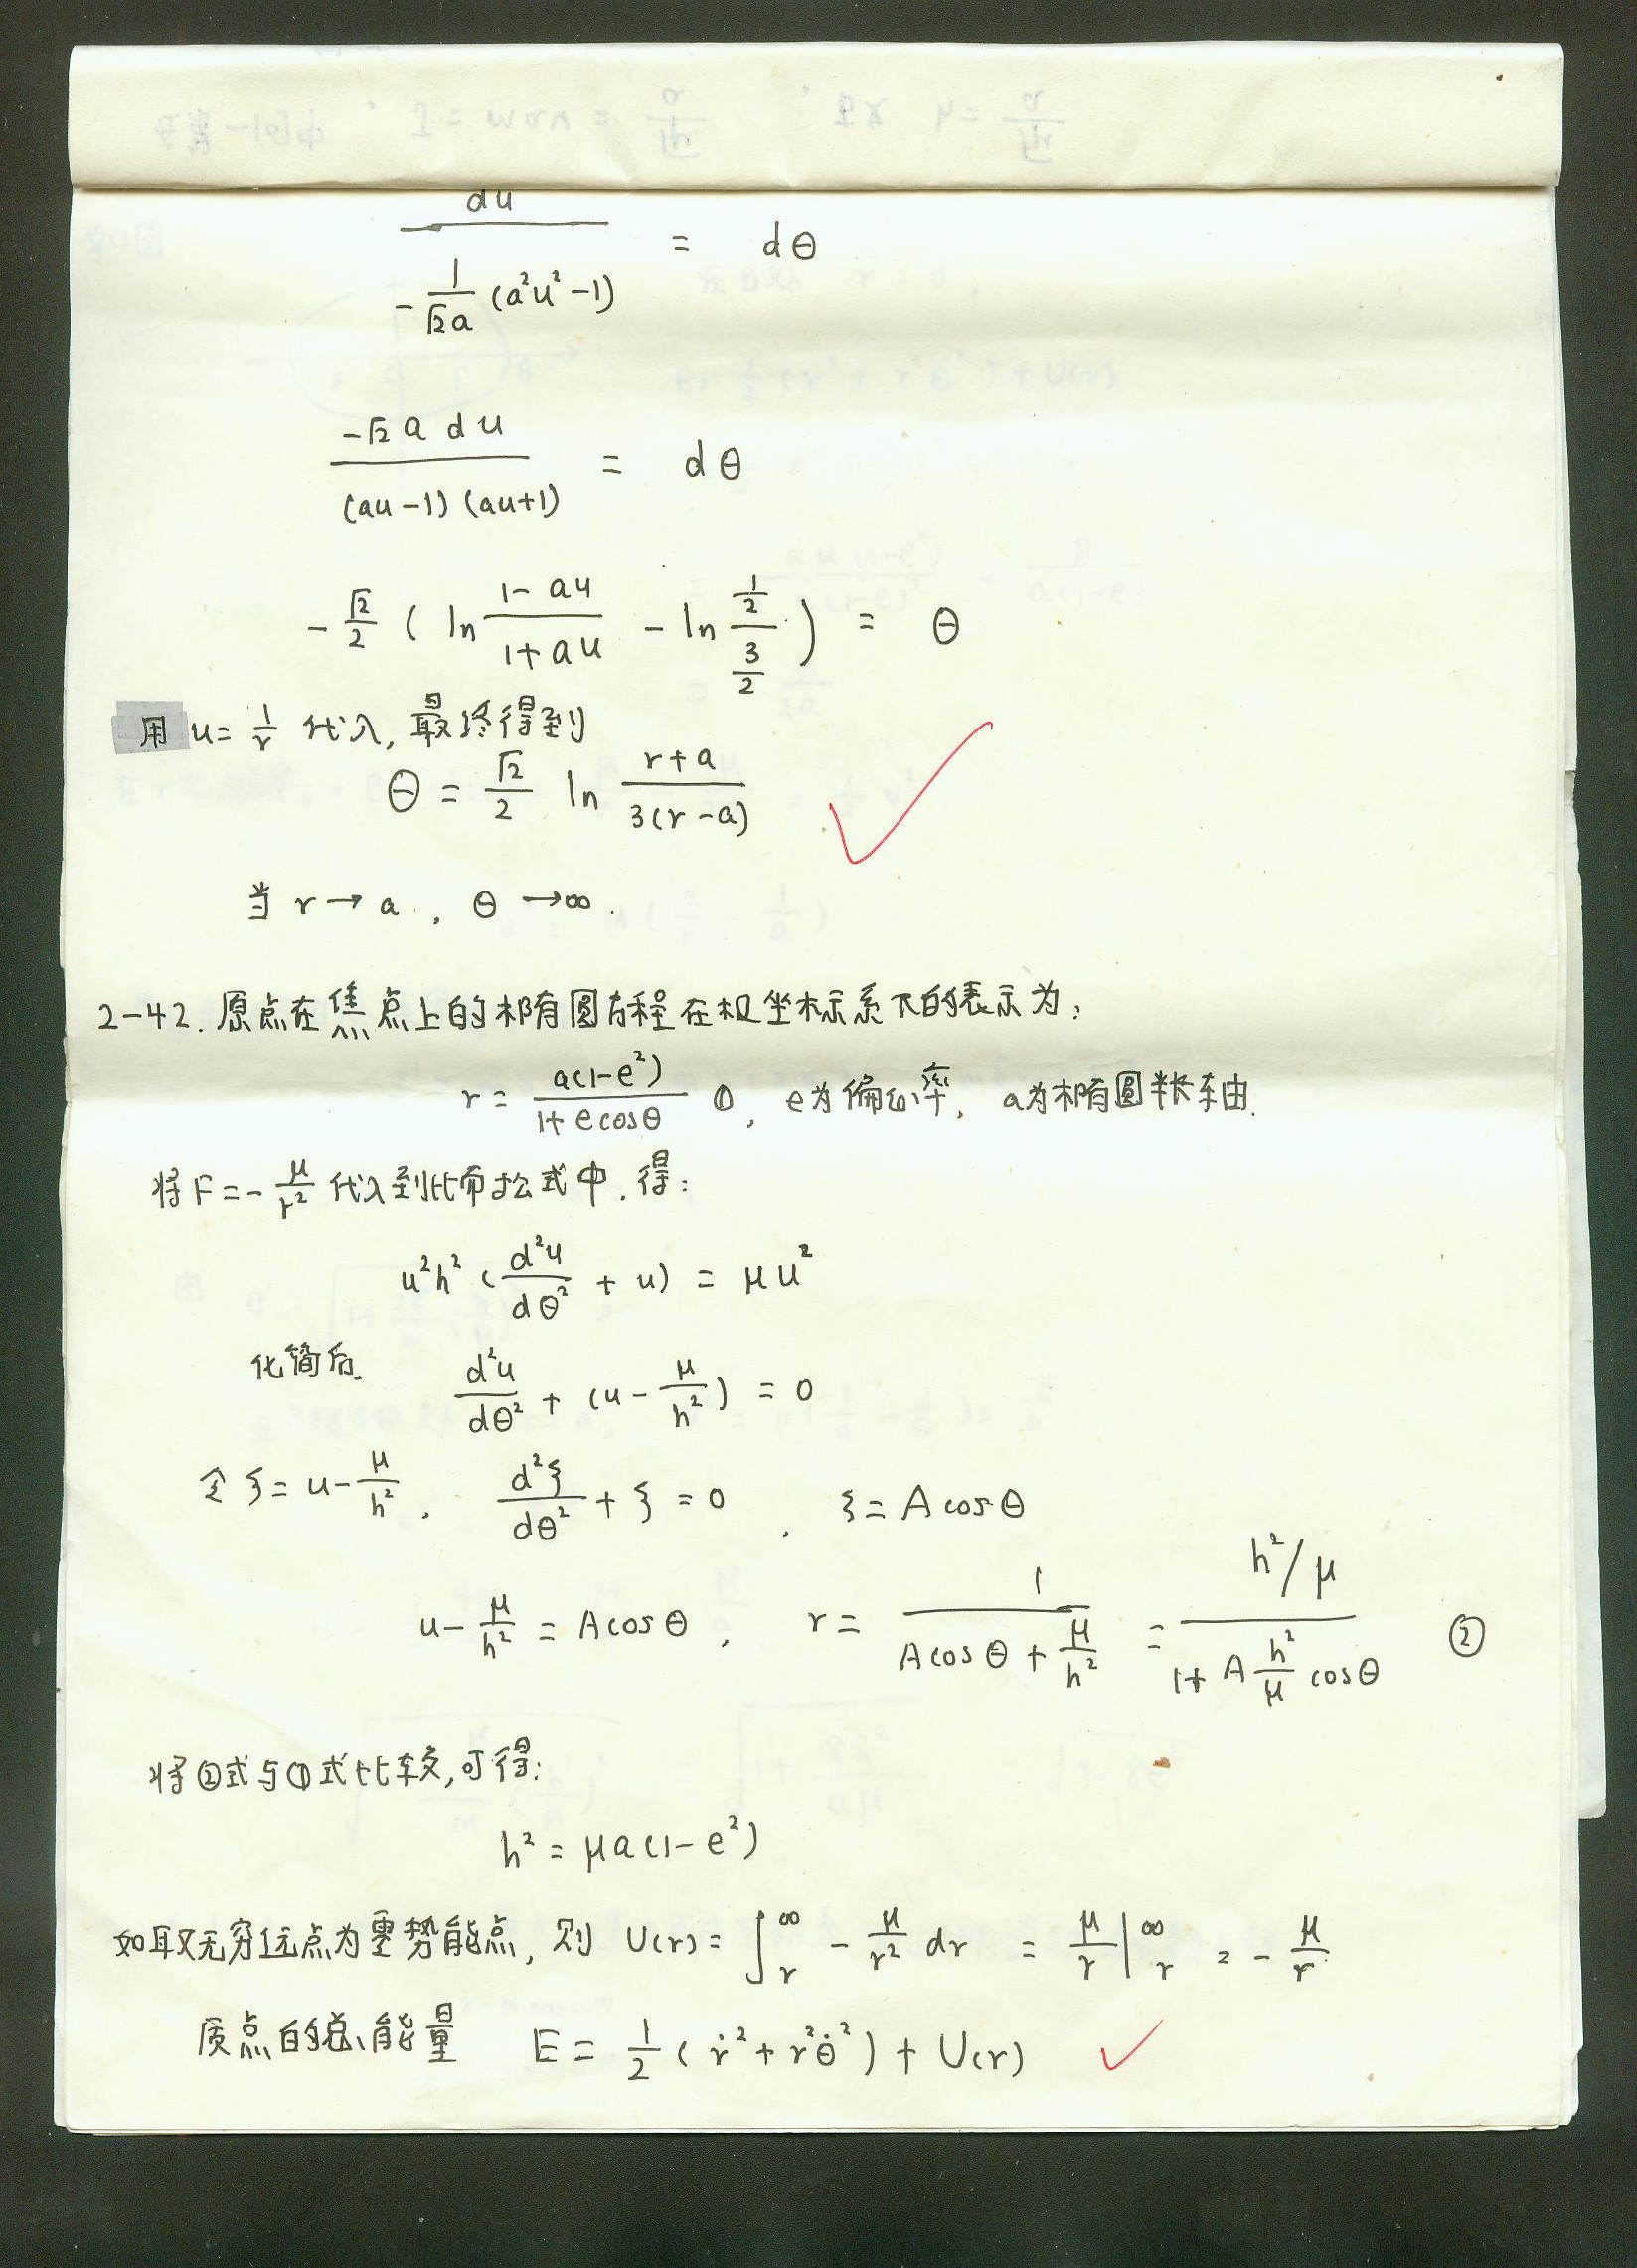 du / (-1/(√2a) (a²u²-1)) = dθ
-√2 a du / ((au-1)(au+1)) = dθ
-√2/2 ( ln (1-au)/(1+au) - ln (1/2)/(3/2) ) = θ
用 u = 1/r 代入, 最终得到
θ = √2/2 ln (r+a)/(3(r-a))
当 r→a, θ→∞.
2-42. 原点在焦点上的椭圆方程在极坐标系下的表示为:
r = a(1-e²)/(1+ecosθ) ①, e为偏心率, a为椭圆半长轴.
将F = -μ/r² 代入到比而公式中, 得:
u²h² (d²u/dθ² + u) = μu²
化简后. d²u/dθ² + (u - μ/h²) = 0
令ξ = u - μ/h², d²ξ/dθ² + ξ = 0, ξ = Acosθ
u - μ/h² = Acosθ, r = 1/(Acosθ + μ/h²) = (h²/μ)/(1 + A h²/μ cosθ) ②
将②式与①式比较, 可得:
h² = μa(1-e²)
如取无穷远点为零势能点, 则 U(r) = ∫_r^∞ -μ/r² dr = μ/r |_r^∞ = -μ/r
质点的总能量 E = 1/2 (ṙ² + r²θ̇²) + U(r)